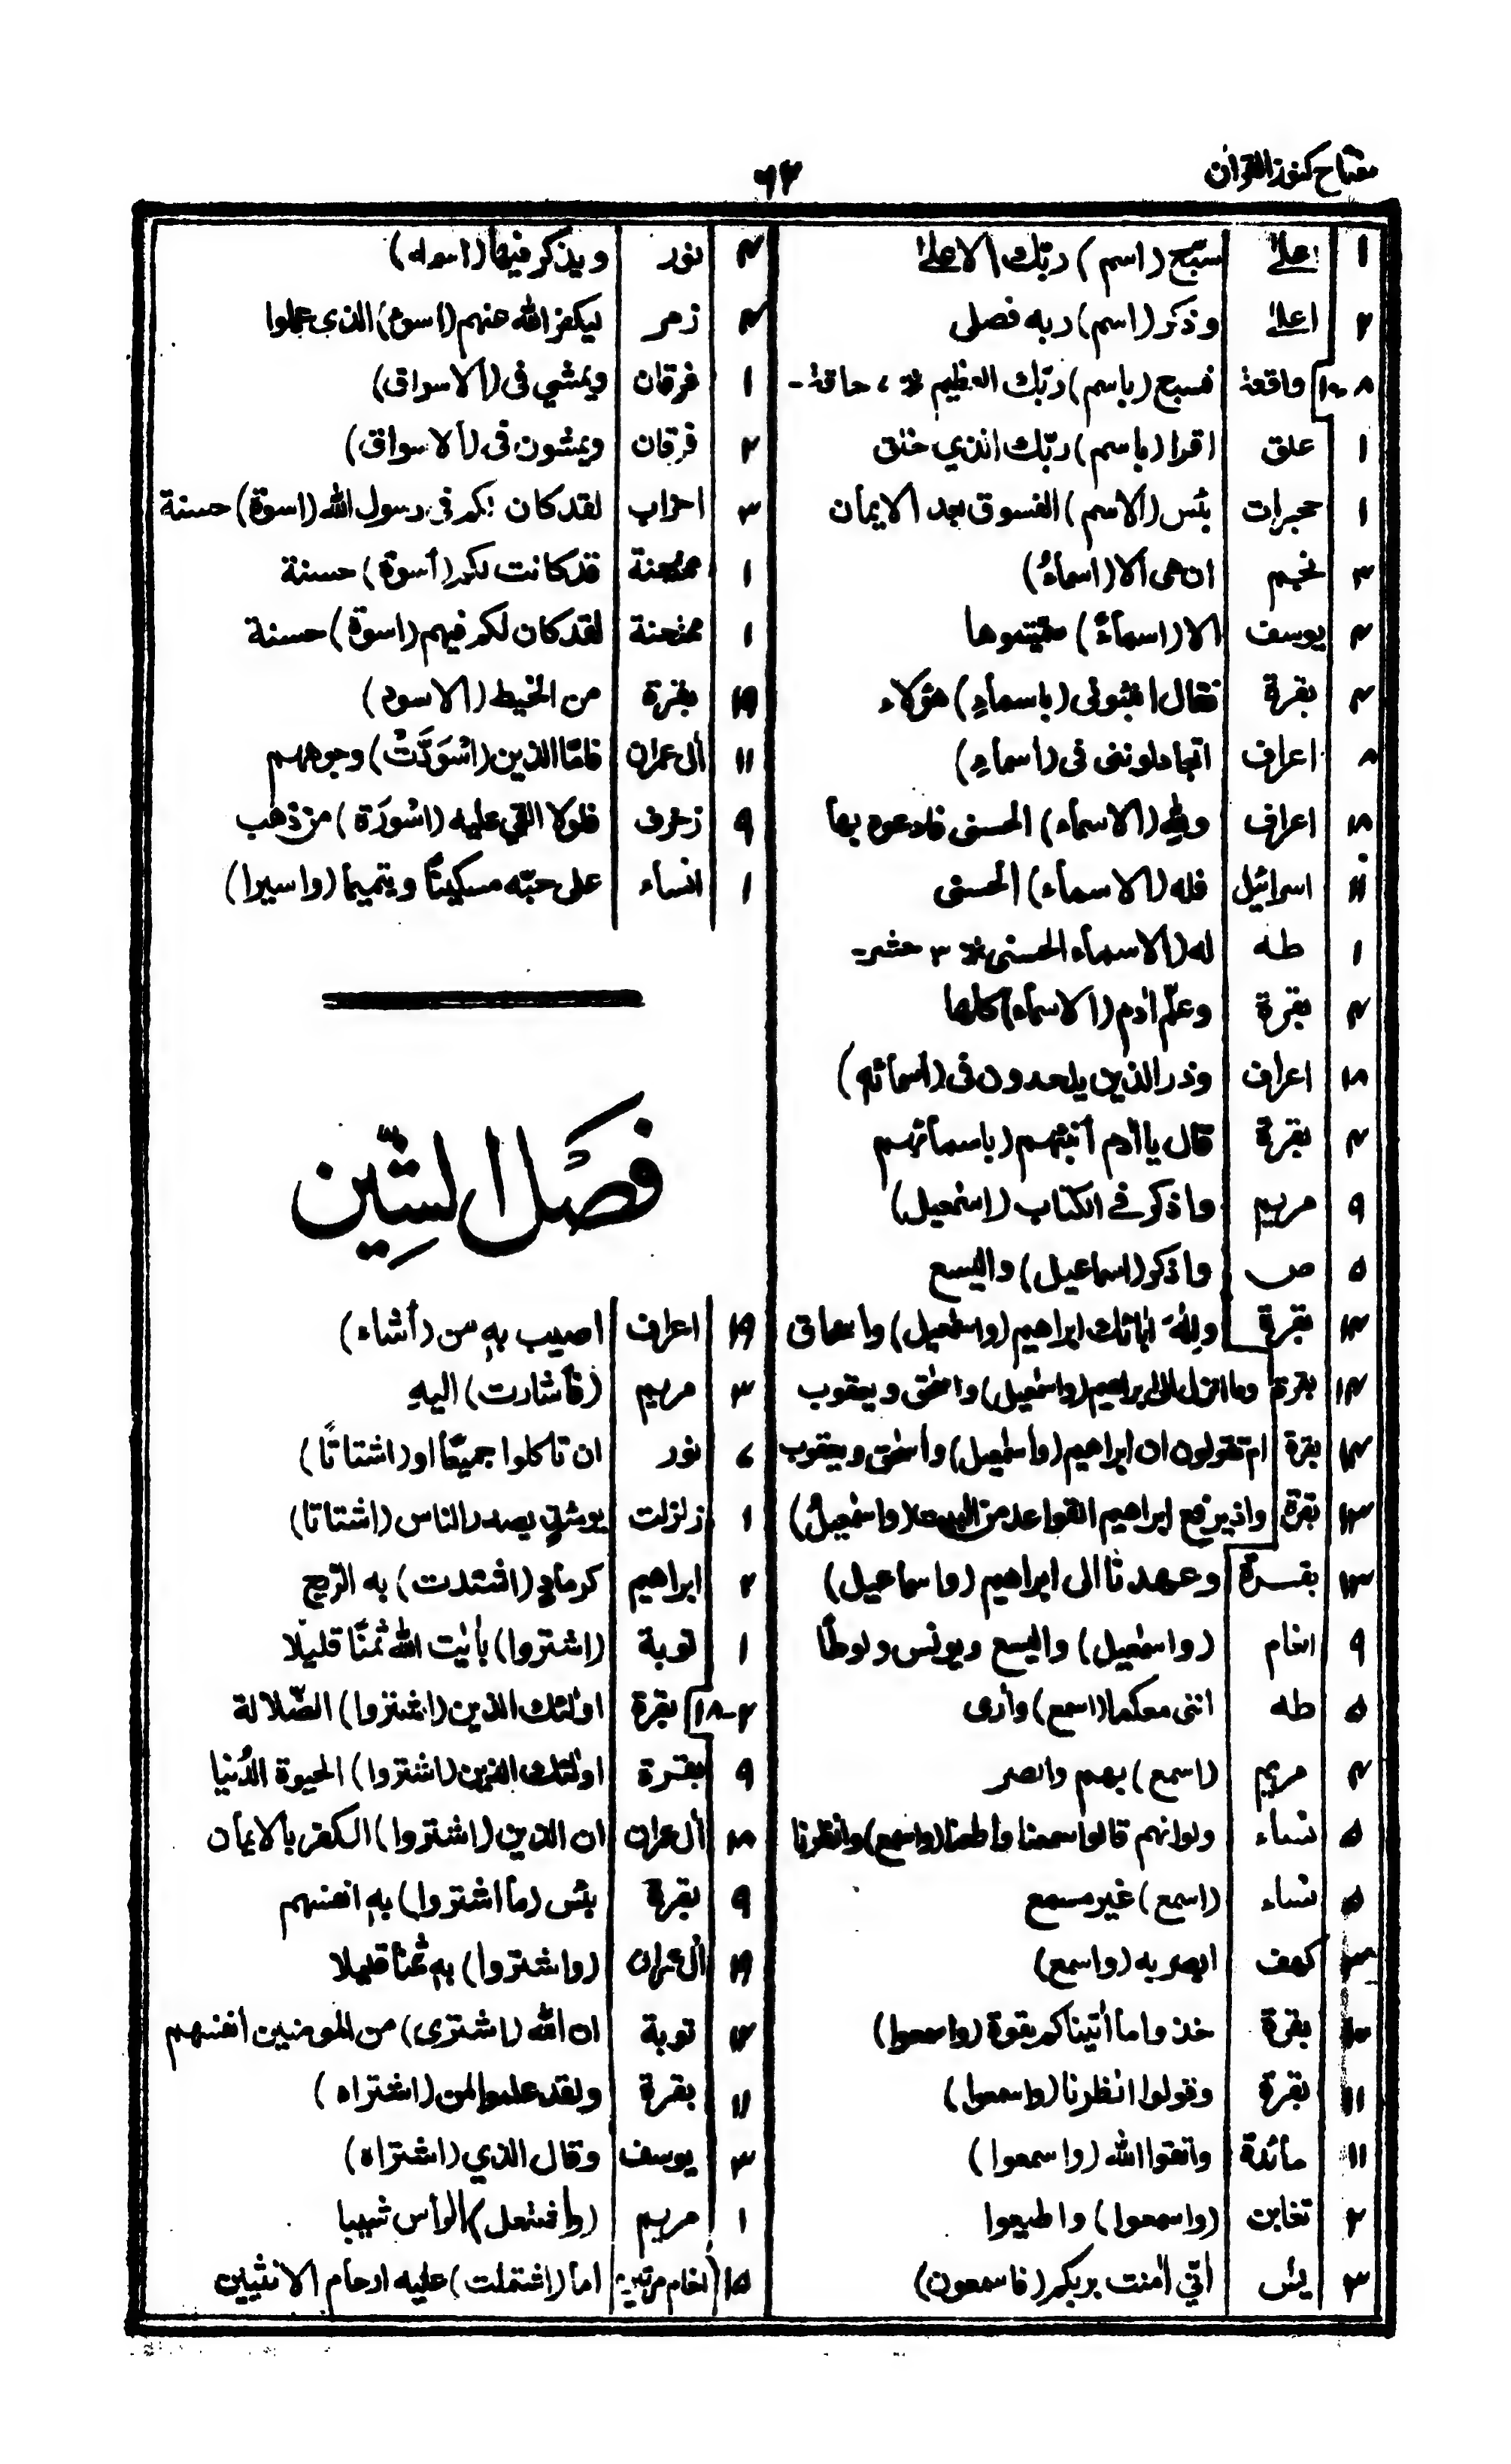 مفتاح كنوز القرآن
٦٢
١ اعلىٰ سبّح (اسم) ربّك الاعلىٰ
٢ اعلىٰ وذكر (اسم) ربه فصلى
واقعة فسبح (باسم) ربّك العظيم حاقة-
١ علق اقرا (باسم) ربّك الذي خلق
١ حجرات بئس (الاسم) الفسوق بعد الايمان
٣ نجم ان هى ألا (اسماءٌ)
٢ يوسف الا (اسمآءً) سميتموها
٢ بقرة فقال انبئونى (باسمآءِ) هؤلاء
٨ اعراف اتجادلوننى فى (أسماءِ)
اعراف ولله (الاسماء) الحسنى فادعوه بها
اسرائيل فله (الاسماء) الحسنى
١ طه له (الاسماء الحسنى ٣ حشر-
٢ بقرة وعلّم اٰدم (الاسماء) كلها
اعراف وذر الذين يلحدون فى (أسمائه)
٢ بقرة قال يا اٰدم أنبئهم (باسمآئهم
٩ مريم واذكر في الكتاب (اسمٰعيل)
٥ ص واذكر (اسماعيل) واليسع
بقرة واِلٰه اٰبائك ابراهيم (واسمٰعيل) واسحاق
بقرة وما انزل الى ابراهيم (واسمٰعيل) واسحٰق ويعقوب
بقرة ام تقولون ان ابراهيم (وأسمٰعيل) وأسحٰق ويعقوب
بقرة واذ يرفع ابراهيم القواعد من البيت (واسمٰعيلُ)
بقرة وعهدنا الى ابراهيم (واسماعيل)
٩ انعام (واسمٰعيل) واليسع ويونس ولوطًا
٥ طه اننى معكما (اسمع) وأرى
٢ مريم (اسمع) بهم وابصر
٥ نساء ولو انهم قالوا سمعنا وأطعنا (واسمع) وانظرنا
٥ نساء (اسمع) غير مسمع
كهف ابصر به (واسمع)
بقرة خذوا ما اٰتيناكم بقوة (واسمعوا)
١١ بقرة وقولوا انظرنا (واسمعوا)
١١ مائدة واتقوا الله (واسمعوا)
٢ تغابن (واسمعوا) واطيعوا
٣ يٰس انّي اٰمنت بربكم (فاسمعون)
نور ويذكر فيها (اسمه)
زمر ليكفر الله عنهم (اسوء) الذى عملوا
١ فرقان ويمشي فى (الاسواق)
٢ فرقان ويمشون فى (ألاسواق)
٣ احزاب لقد كان لكم فى رسول الله (اسوة) حسنة
١ ممتحنة قد كانت لكم (أسوة) حسنة
١ ممتحنة لقد كان لكم فيهم (اسوة) حسنة
بقرة من الخيط (الاسود)
١١ اٰل عمران فامّا الذين (اسْوَدَّتْ) وجوههم
٩ زخرف فلولا القي عليه (اسْوِرَة) من ذهب
١ انساء على حبّه مسكينًا ويتيما (واسيرا)
فصل الشِّين
١٩ اعراف اصيب بهٖ من (أشاء)
٣ مريم (فأشارت) اليهِ
نور ان تاكلوا جميعًا او (اشتاتًا)
١ زلزلت يومئذٍ يصدر الناس (اشتاتا)
٢ ابراهيم كرمادٍ (اشتدت) به الرّيح
١ توبة (اشتروا) بأيٰت الله ثمنًا قليلًا
١٨-٢ بقرة اولئك الذين (اشتروا) الضّلالة
٩ بقرة اولئك الذين (اشتروا) الحيوة الدُنيا
اٰل عمران ان الذين (اشتروا) الكفر بالايمان
٩ بقرة بئس (ما اشتروا) بهٖ انفسهم
١٩ اٰل عمران (واشتروا) بهٖ ثمنًا قليلا
توبة ان الله (اشترى) من المومنين أنفسهم
بقرة ولقد علموا لمن (اشتراه)
٣ يوسف وقال الذي (اشتراه)
١ مريم (واشتعل) الرأس شيبا
١٥ (انعام مرتين) أما (اشتملت) عليه ارحام الانثيين